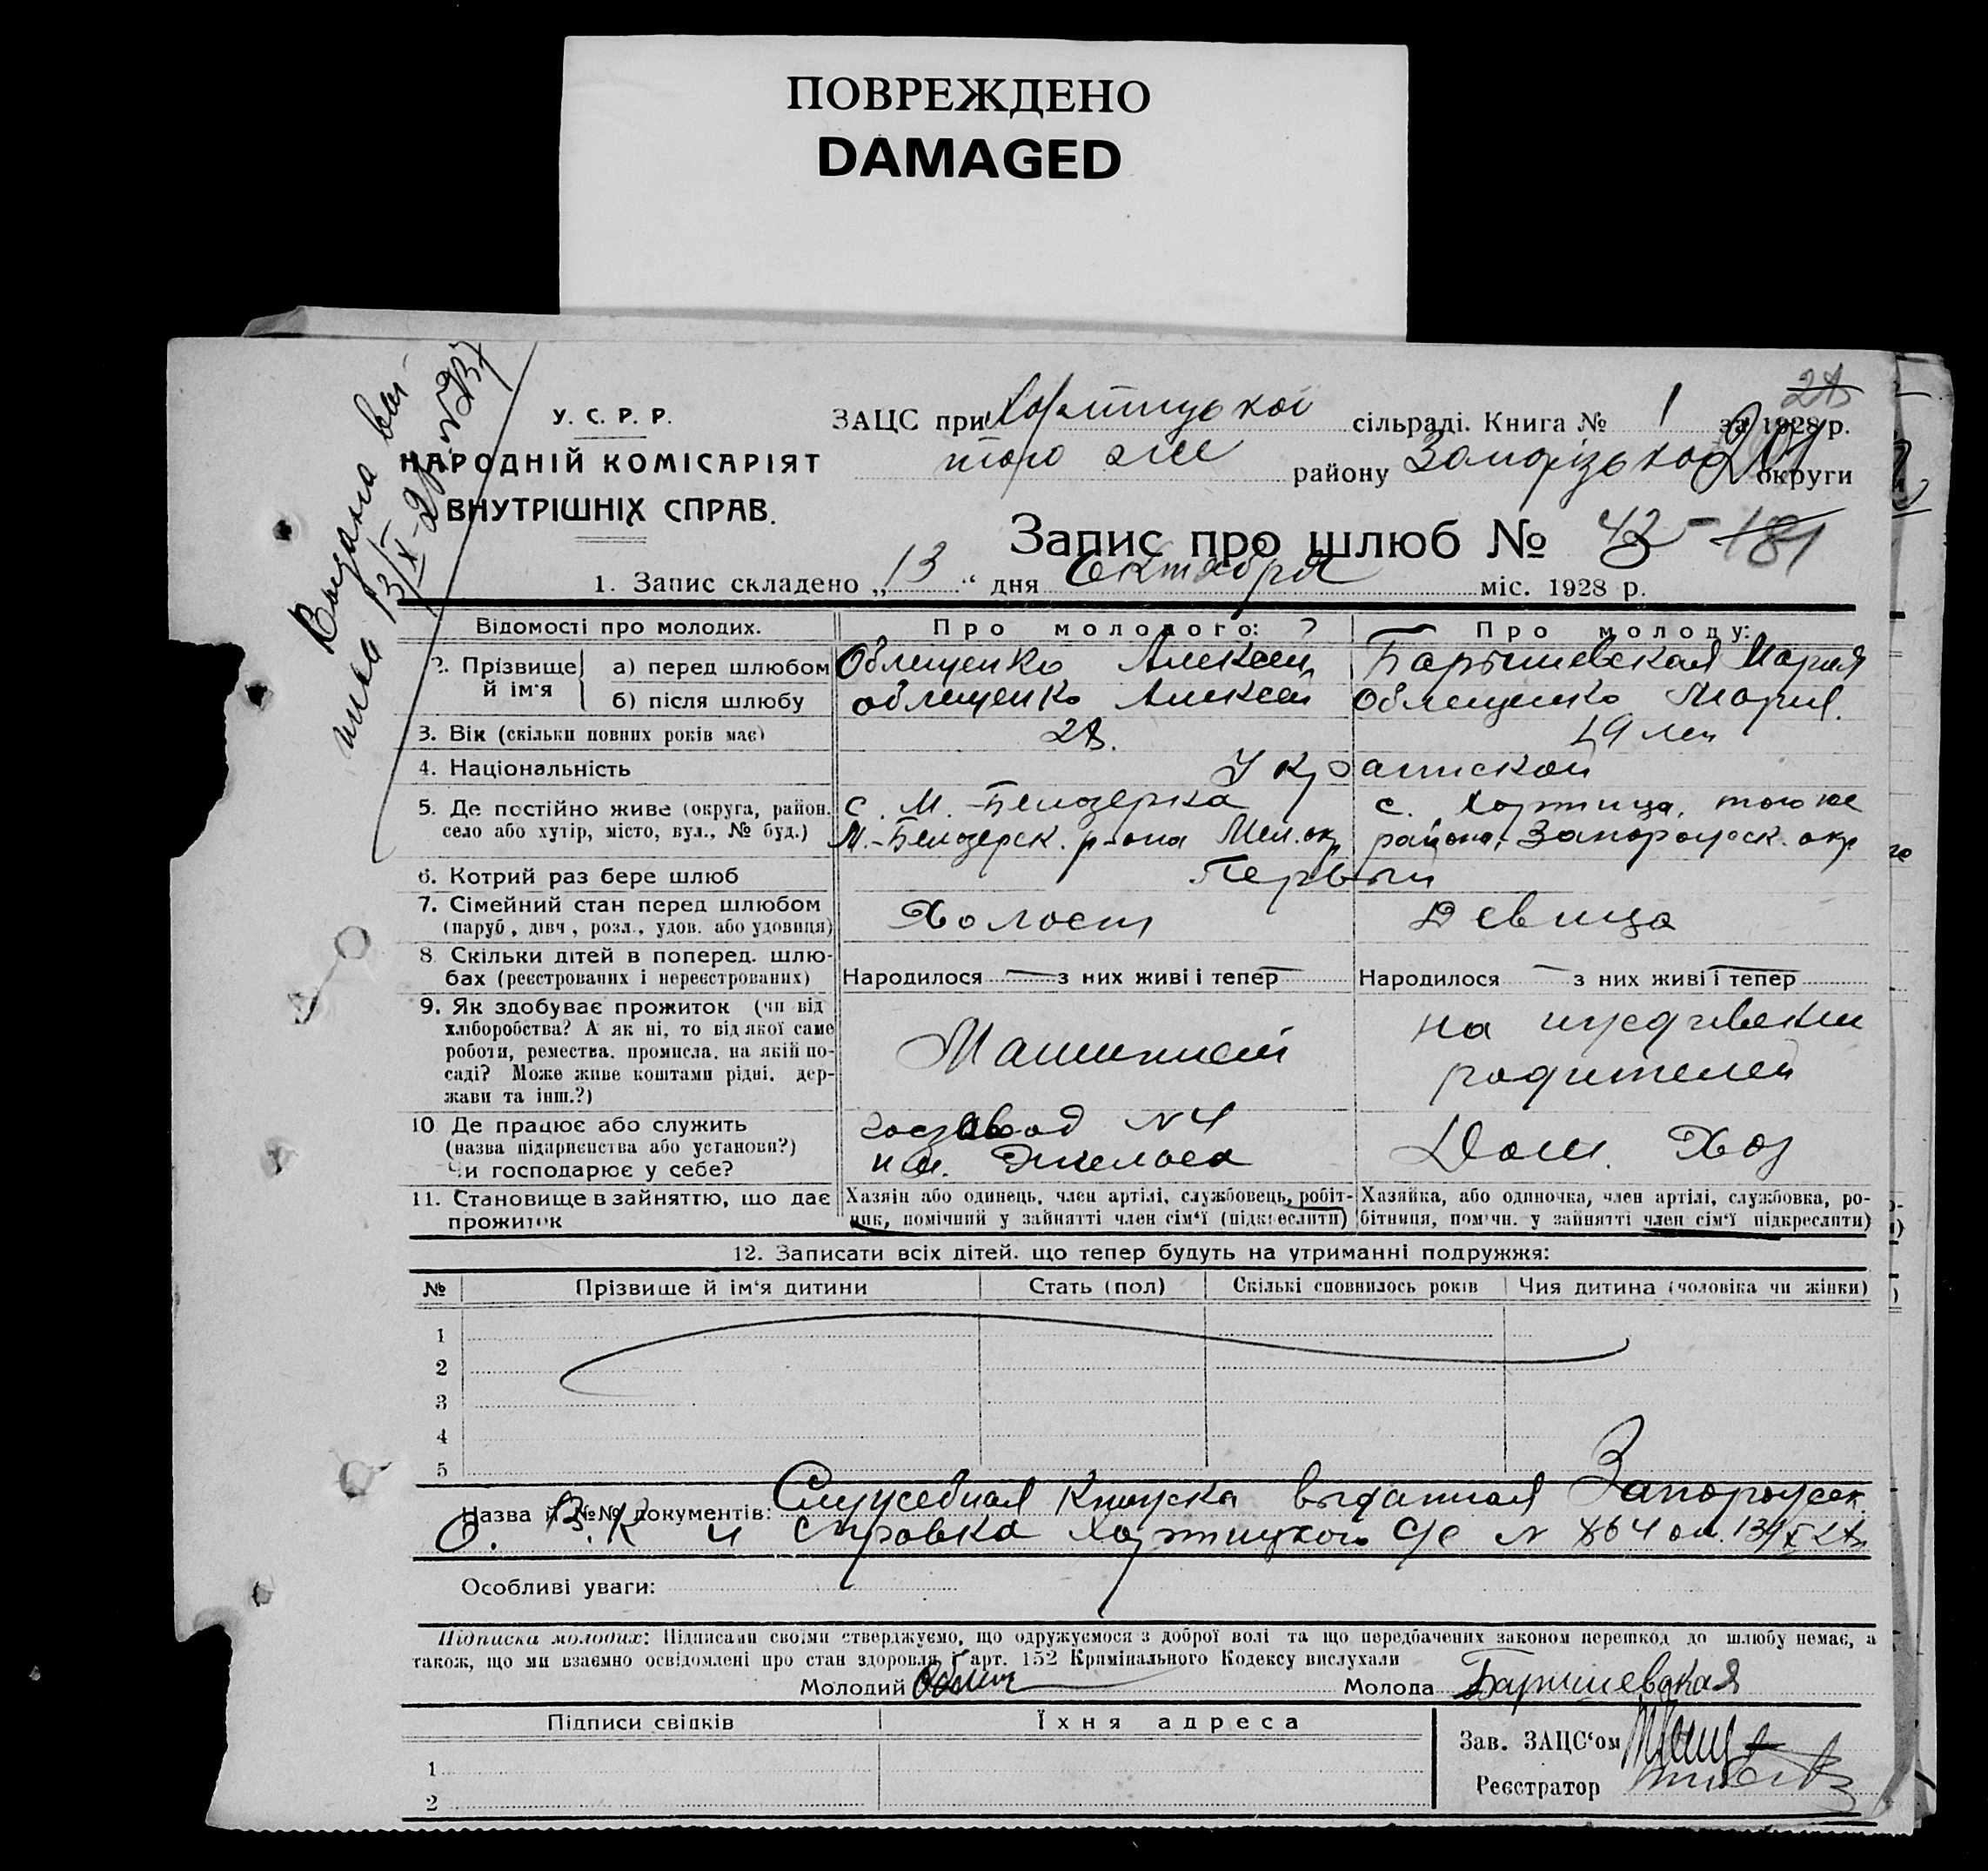 ПОВРЕЖДЕНО
DAMAGED
У. С. Р. Р.
НАРОДНІЙ КОМІСАРІЯТ
ВНУТРІШНІХ СПРАВ.
Видана
ЗАЦС при Хортицькой сільраді. Книга № 1 за 1928 р.
того же району Запорізькой округи
Запис про шлюб № 43 181
1. Запис складено „13“ дня Октября міс. 1928 р.
Відомості про молодих. Про молодого: Про молоду:
2. Прізвище й ім'я а) перед шлюбом Облещенко Алексей Барышевская Мария
б) після шлюбу Облещенко Алексей Облещенко Мария.
3. Вік (скільки повних років має) 28. 19 лет
4. Національність Украинской
5. Де постійно живе (округа, район. с. М.-Белозерка с. Хортица, того же
село або хутір, місто, вул., № буд.) М.-Белозерск. р-она Мел. окр района, Запорожск. окр
6. Котрий раз бере шлюб Первый
7. Сімейний стан перед шлюбом Холост Девица
(паруб., дівч., розл., удов. або удовиця)
8 Скільки дітей в поперед. шлю-
бах (реєстрованих і нереєстрованих) Народилося — з них живі і тепер — Народилося — з них живі і тепер —
9. Як здобуває прожиток (чи від Машинист на иждивении
хліборобства? А як ні, то від якої саме родителей
роботи, ремества. промисла. на якій по-
саді? Може живе коштами рідні. дер-
жави та інш.?)
10 Де працює або служить госзавод № 4 Дом. Хоз
(назва підприєнства або установи?) им. Энгельса
Чи господарює у себе?
11. Становище в зайняттю, що дає Хазяін або одинець, член артілі, службовець, робіт- Хазяйка, або одиночка, член артілі, службовка, ро-
прожиток ник, помічний у зайнятті член сім'ї (підкреслити) бітниця, помічн. у зайнятті член сім'ї підкреслити)
12. Записати всіх дітей. що тепер будуть на утриманні подружжя:
№ Прізвище й ім'я дитини Стать (пол) Скількі сповнилось років Чия дитина (чоловіка чи жінки)
1
2
3
4
5
Назва й №№ документів: Служебная Книжка выданная Запорожск.
О. В. К и справка Хортицкого С/с № 864 от 13/X 28
Особливі уваги:
Підписка молодих: Підписами своїми стверджуємо, що одружуємося з доброї волі та що передбачених законом перешкод до шлюбу немає, а
також, що ми взаємно освідомлені про стан здоровля і арт. 152 Кримінального Кодексу вислухали
Молодий Облещ Молода Барышевская
Підписи свідків Їхня адреса
Зав. ЗАЦС'ом
1
Реєстратор
2